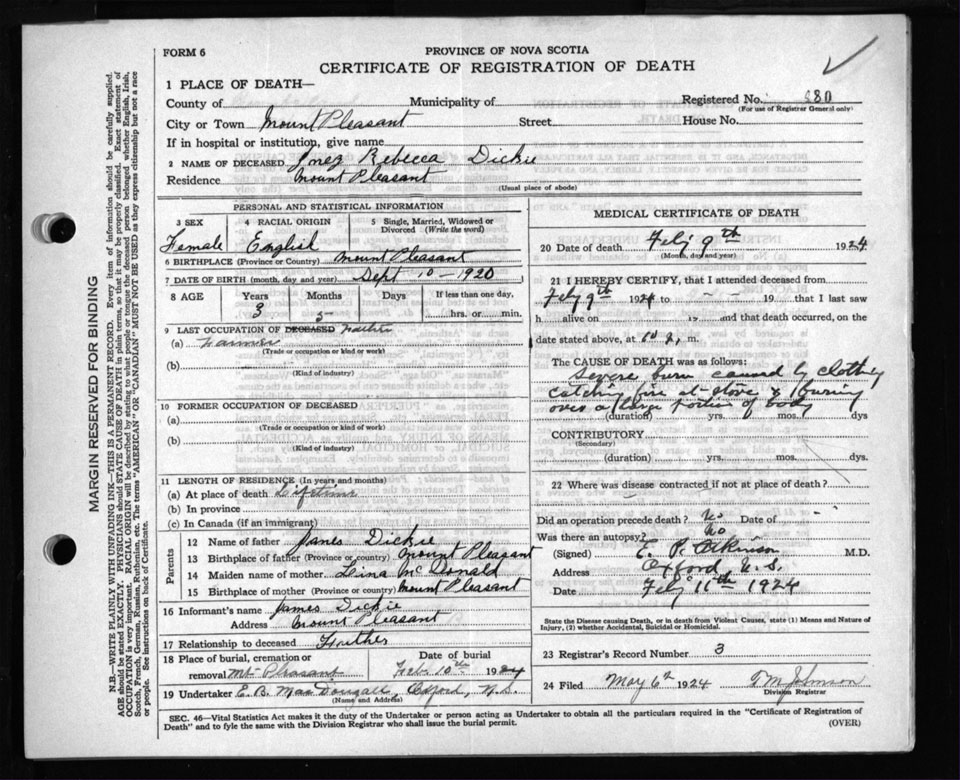 FORM 6
PROVINCE OF NOVA SCOTIA
CERTIFICATE OF REGISTRATION OF DEATH
1 PLACE OF DEATH—
County of Municipality of Registered No. 880
(For use of Registrar General only)
City or Town Mount Pleasant Street House No.
If in hospital or institution, give name
2 NAME OF DECEASED Inez Rebecca Dickie
Residence Mount Pleasant
(Usual place of abode)
PERSONAL AND STATISTICAL INFORMATION
3 SEX 4 RACIAL ORIGIN 5 Single, Married, Widowed or Divorced (Write the word)
Female English
6 BIRTHPLACE (Province or Country) Mount Pleasant
7 DATE OF BIRTH (month, day and year) Sept 10 - 1920
8 AGE Years Months Days If less than one day,
3 5 hrs. or min.
9 LAST OCCUPATION OF DECEASED Father
(a) Farmer
(Trade or occupation or kind or work)
(b)
(Kind of industry)
10 FORMER OCCUPATION OF DECEASED
(a)
(Trade or occupation or kind of work)
(b)
(Kind of industry)
11 LENGTH OF RESIDENCE (In years and months)
(a) At place of death Lifetime
(b) In province
(c) In Canada (if an immigrant)
Parents
12 Name of father James Dickie
13 Birthplace of father (Province or country) Mount Pleasant
14 Maiden name of mother Lina McDonald
15 Birthplace of mother (Province or country) Mount Pleasant
16 Informant's name James Dickie
Address Mount Pleasant
17 Relationship to deceased Father
18 Place of burial, cremation or removal Mt Pleasant Date of burial Feb 10th 1924
19 Undertaker E. B. MacDougall, Oxford, N.S.
(Name and Address)
MEDICAL CERTIFICATE OF DEATH
20 Date of death Feby 9th 1924
(Month, day and year)
21 I HEREBY CERTIFY, that I attended deceased from
Feby 9th 1924 to - - 19 , that I last saw
h alive on 19 and that death occurred, on
date stated above, at 10 a, m.
The CAUSE OF DEATH was as follows:
Severe burn caused by clothing
catching fire at stove & burning
over a large portion of body
(duration) yrs. mos. dys
CONTRIBUTORY
(Secondary)
(duration) yrs. mos. dys.
22 Where was disease contracted if not at place of death?
Did an operation precede death? No Date of
Was there an autopsy? No
(Signed) E. P. Atkinson M.D.
Address Oxford N.S.
Date Feby 11th 1924
State the Disease causing Death, or in death from Violent Causes, state (1) Means and Nature of Injury, (2) whether Accidental, Suicidal or Homicidal.
23 Registrar's Record Number 3
24 Filed May 6th 1924 T M Johnson
Division Registrar
SEC. 46—Vital Statistics Act makes it the duty of the Undertaker or person acting as Undertaker to obtain all the particulars required in the "Certificate of Registration of
Death" and to fyle the same with the Division Registrar who shall issue the burial permit. (OVER)
MARGIN RESERVED FOR BINDING
N.B.—WRITE PLAINLY WITH UNFADING INK—THIS IS A PERMANENT RECORD. Every item of information should be carefully supplied.
AGE should be stated EXACTLY. PHYSICIANS should STATE CAUSE OF DEATH in plain terms, so that it may be properly classified. Exact statement of
OCCUPATION is very important. RACIAL ORIGIN will be described by stating to what people or tongue the deceased person belonged whether English, Irish,
Scotch, French, German, Russian, Ruthenian, etc. The terms "AMERICAN" OR "CANADIAN" MUST NOT BE USED as they express citizenship but not a race
or people. See instructions on back of Certificate.